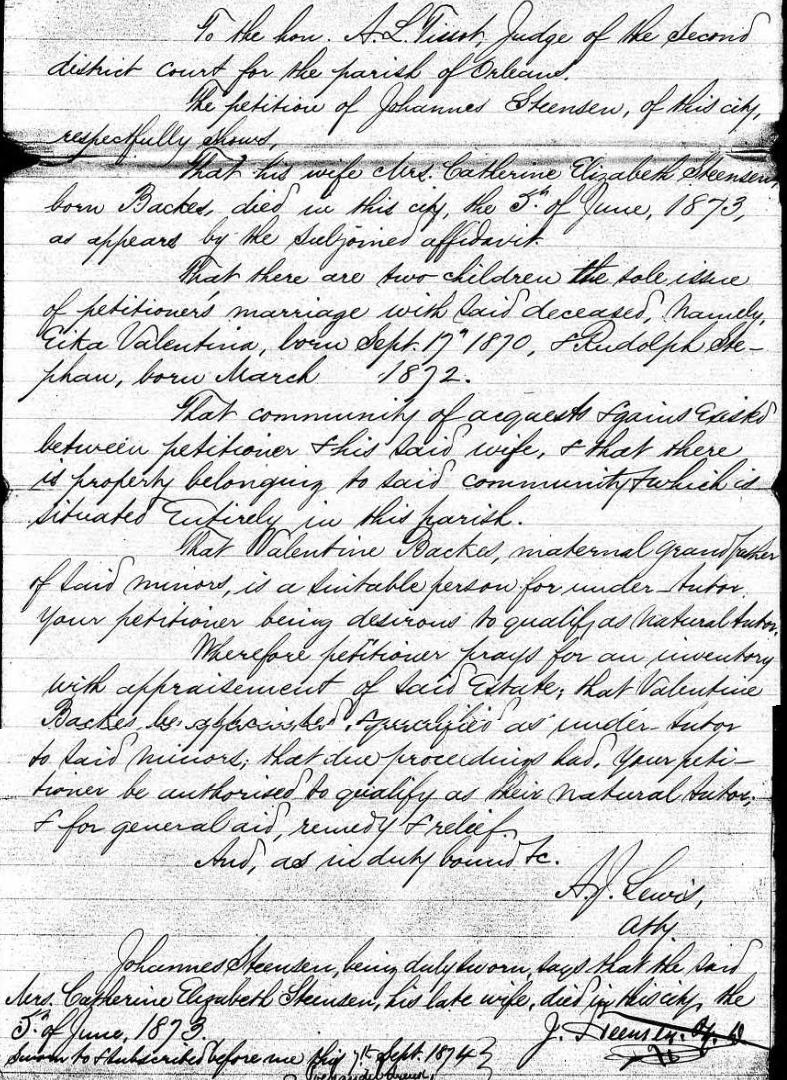 To the hon. A. L. Tissot, Judge of the Second
district court for the parish of Orleans.
The petition of Johannes Steensen, of this city,
respectfully shows,
That his wife Mrs. Catherine Elizabeth Steensen,
born Backes, died in this city, the 5th of June, 1873,
as appears by the subjoined affidavit.
That there are two children the sole issue
of petitioner's marriage with said deceased, namely,
Eika Valentina, born Sept. 17th 1870, & Rudolph Ste-
phan, born March 1872.
That community of acquests & gains existed
between petitioner & his said wife, & that there
is property belonging to said community & which is
situated entirely in this parish.
That Valentine Backes, maternal grandfather
of said minors, is a suitable person for under-tutor.
Your petitioner being desirous to qualify as natural tutor.
Wherefore petitioner prays for an inventory
with appraisement of said Estate; that Valentine
Backes be appointed & qualified as under-tutor
to said minors; that due proceedings had, your peti-
tioner be authorised to qualify as their natural tutor;
& for general aid, remedy & relief.
And, as in duty bound &c.
A. J. Lewis,
Atty
Johannes Steensen, being duly sworn, says that the said
Mrs. Catherine Elizabeth Steensen, his late wife, died in this city, the
5th of June, 1873.
J. Steensen
Sworn to & subscribed before me this 7th Sept. 1874